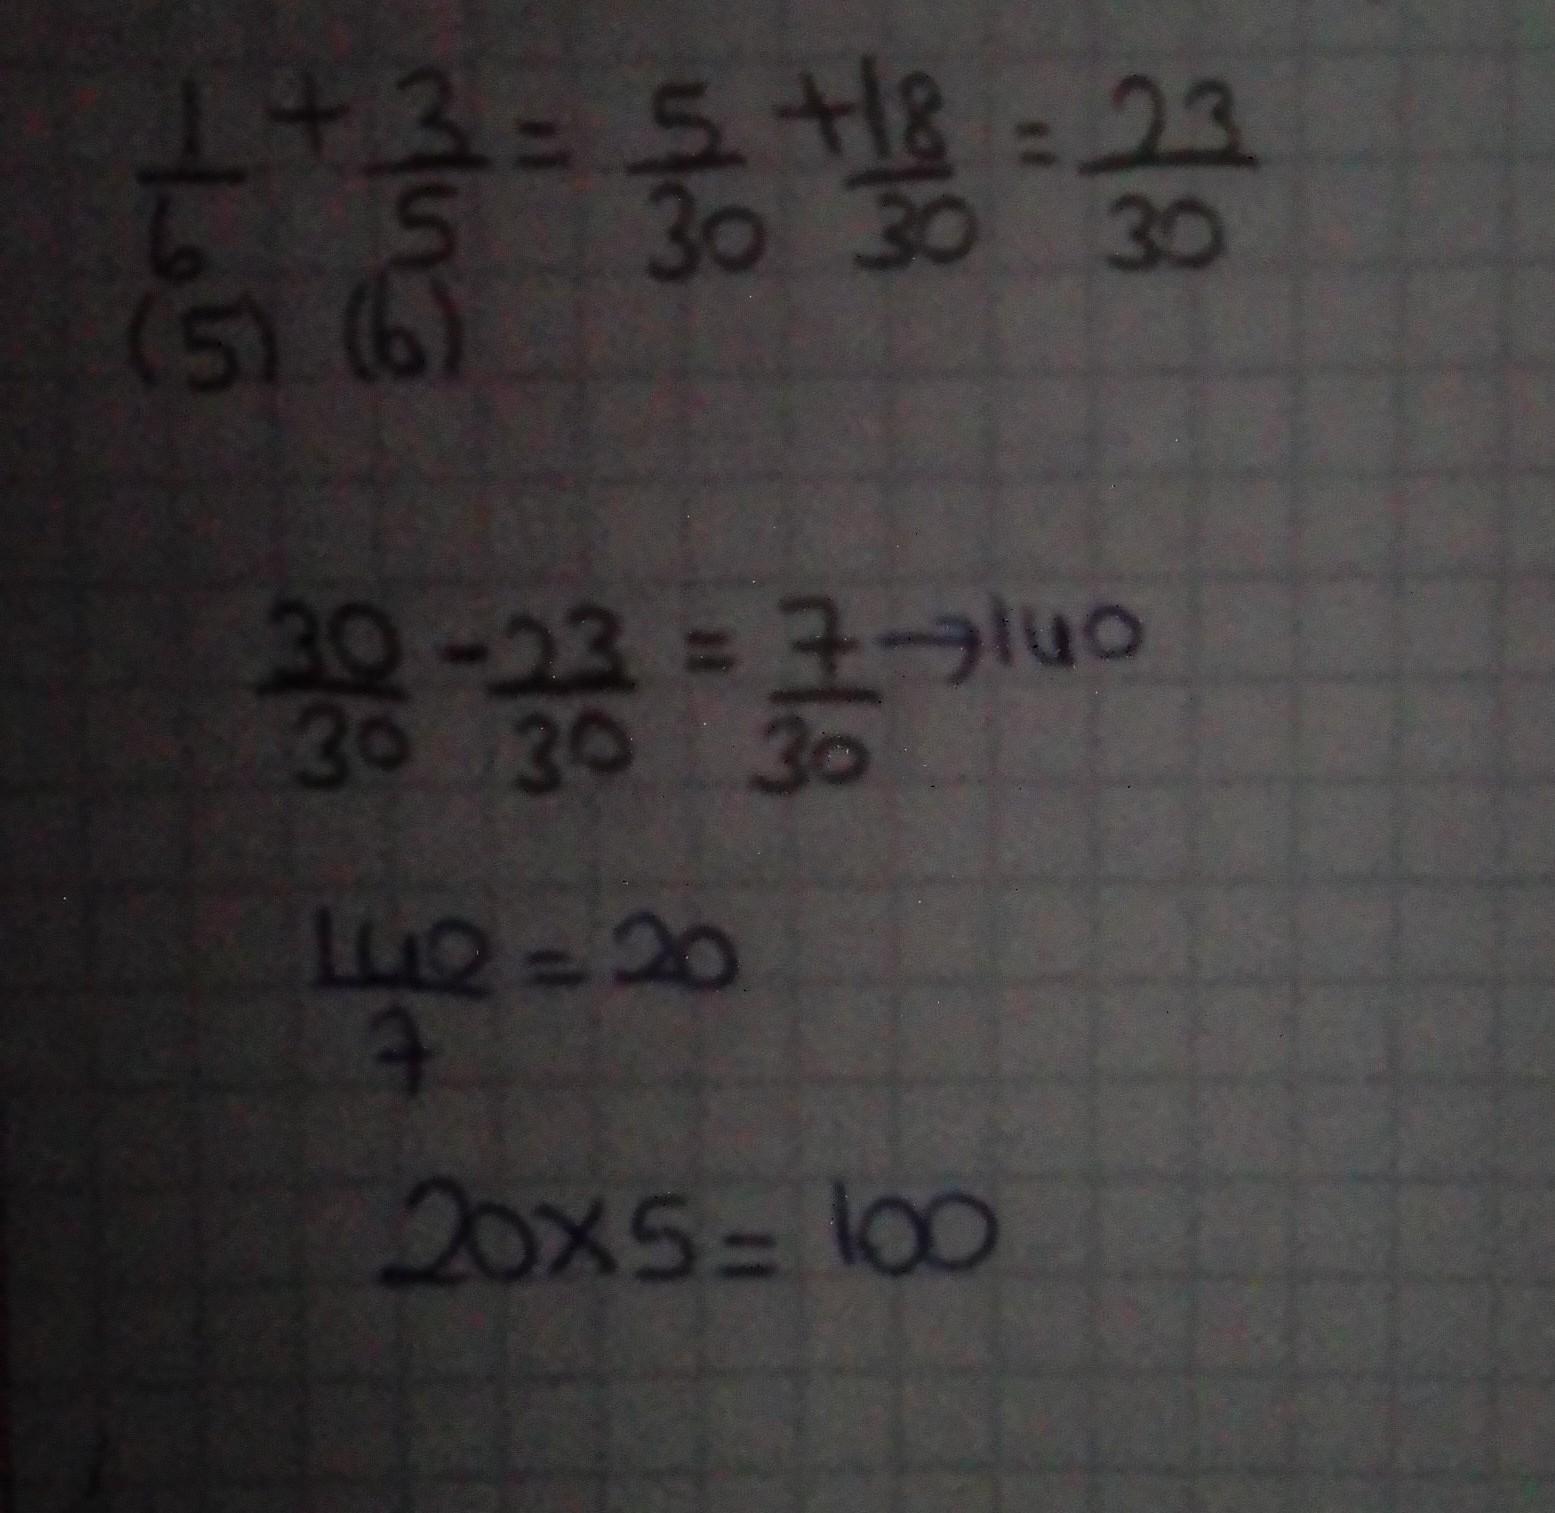 1/6 + 3/5 = 5/30 + 18/30 = 23/30
(5) (6)
30/30 - 23/30 = 7/30 → 140
140/7 = 20
20 x 5 = 100